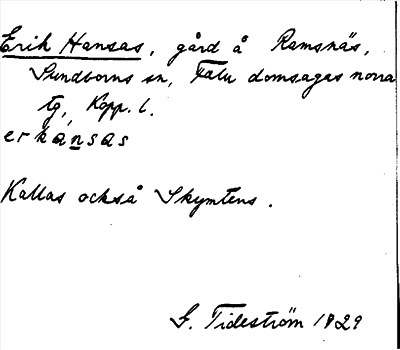 Erik Hansas, gård å Ramsnäs,
Sundborns sn, Falu domsagas norra
tg, Kopp. l.
erkansas
Kallas också Skymtens.
G. Tideström 1929